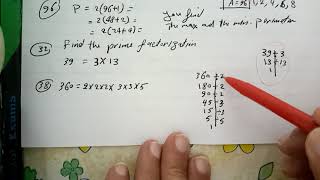 96 P = 2(96+1) =
= 2(48+2) =
= 2(24+4) =
you find
the max and the min. perimeter
A=96 1, 2, 4, 6, 8
32 Find the prime factorization
39 = 3 X 13
39 3
13 13
1
38 360 = 2 x 2 x 2 x 3 x 3 x 5
360 2
180 2
90 2
45 3
15 3
5 5
1